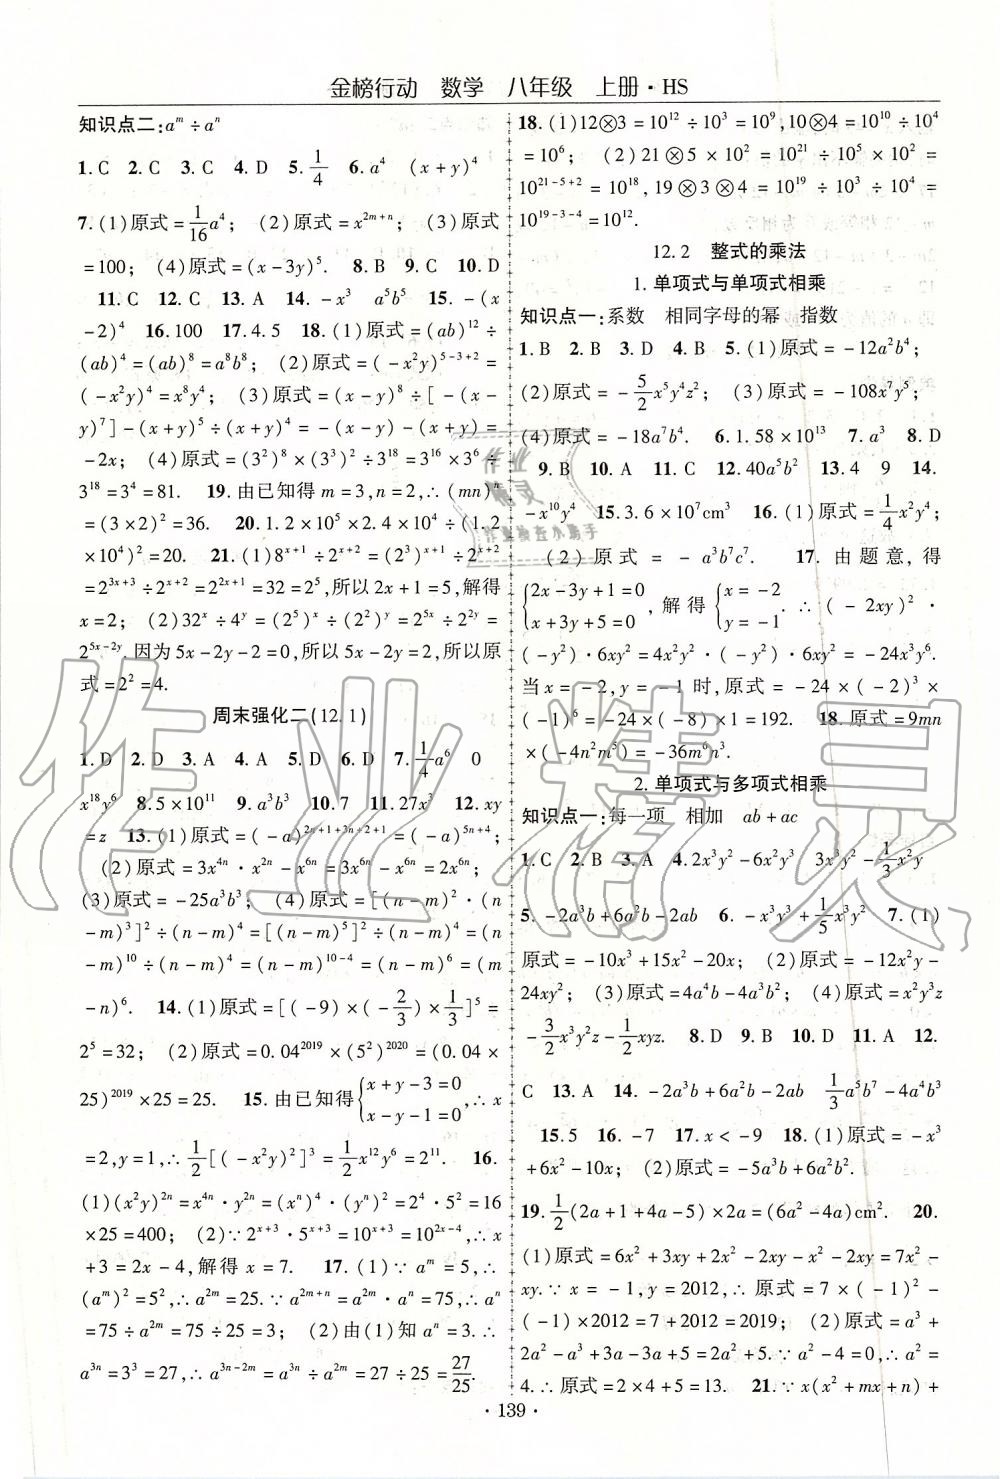 金榜行动 数学 八年级 上册·HS
知识点二:a^m÷a^n
1.C 2.C 3.C 4.D 5.1/4 6.a^4 (x+y)^4
7.(1)原式=1/16a^4; (2)原式=x^{2m+n}; (3)原式
=100; (4)原式=(x-3y)^5. 8.B 9.C 10.D
11.C 12.C 13.A 14.-x^3 a^5b^5 15.-(x
-2)^4 16.100 17.4.5 18.(1)原式=(ab)^{12}÷
(ab)^4=(ab)^8=a^8b^8; (2)原式=(-x^2y)^{5-3+2}=
(-x^2y)^4=x^8y^4; (3)原式=(x-y)^8÷[-(x-
y)^7]-(x+y)^5÷(x+y)^4=-(x-y)-(x+y)=
-2x; (4)原式=(3^2)^8×(3^3)^2÷3^{18}=3^{16}×3^6÷
3^{18}=3^4=81. 19.由已知得m=3,n=2,∴(mn)^n
=(3×2)^2=36. 20.1.2×10^5×2.4×10^4÷(1.2
×10^4)^2=20. 21.(1)8^{x+1}÷2^{x+2}=(2^3)^{x+1}÷2^{x+2}
=2^{3x+3}÷2^{x+2}=2^{2x+1}=32=2^5,所以2x+1=5,解得
x=2; (2)32^x÷4^y=(2^5)^x÷(2^2)^y=2^{5x}÷2^{2y}=
2^{5x-2y}.因为5x-2y-2=0,所以5x-2y=2,所以原
式=2^2=4.
周末强化二(12.1)
1.D 2.D 3.A 4.A 5.D 6.D 7.1/4a^6 0
x^{18}y^6 8.5×10^{11} 9.a^3b^3 10.7 11.27x^3 12.xy
=z 13.(1)原式=(-a)^{2n+1+3n+2+1}=(-a)^{5n+4};
(2)原式=3x^{4n}·x^{2n}-x^{6n}=3x^{6n}-x^{6n}=2x^{6n};
(3)原式=-25a^3b^3; (4)原式=[(n-m)^2·(n
-m)^3]^2÷(n-m)^4=[(n-m)^5]^2÷(n-m)^4=(n
-m)^{10}÷(n-m)^4=(n-m)^{10-4}=(n-m)^6=(m
-n)^6. 14.(1)原式=[(-9)×(-2/3)×1/3]^5=
2^5=32; (2)原式=0.04^{2019}×(5^2)^{2020}=(0.04×
25)^{2019}×25=25. 15.由已知得{x+y-3=0
x-y-1=0,∴x
=2,y=1,∴1/2[(-x^2y)^2]^3=1/2x^{12}y^6=2^{11}. 16.
(1)(x^2y)^{2n}=x^{4n}·y^{2n}=(x^n)^4·(y^n)^2=2^4·5^2=16
×25=400; (2)∵2^{x+3}·5^{x+3}=10^{x+3}=10^{2x-4},∴x
+3=2x-4,解得x=7. 17.(1)∵a^m=5,∴
(a^m)^2=5^2,∴a^{2m}=25.∵a^{2m+n}=a^{2m}·a^n=75,∴a^n
=75÷a^{2m}=75÷25=3; (2)由(1)知a^n=3.∴
a^{3n}=3^3=27,∴a^{3n-2m}=a^{3n}÷a^{2m}=27÷25=27/25.
18.(1)12⊗3=10^{12}÷10^3=10^9,10⊗4=10^{10}÷10^4
=10^6; (2)21⊗5×10^2=10^{21}÷10^5×10^2=
10^{21-5+2}=10^{18},19⊗3⊗4=10^{19}÷10^3÷10^4=
10^{19-3-4}=10^{12}.
12.2 整式的乘法
1.单项式与单项式相乘
知识点一:系数 相同字母的幂 指数
1.B 2.B 3.D 4.B 5.(1)原式=-12a^2b^4;
(2)原式=-5/2x^5y^4z^2; (3)原式=-108x^7y^5;
(4)原式=-18a^7b^4. 6.1.58×10^{13} 7.a^3 8.D
9.B 10.A 11.C 12.40a^5b^2 13.4 9 14.
-x^{10}y^4 15.3.6×10^7cm^3 16.(1)原式=1/4x^2y^4;
(2)原式=-a^3b^7c^7. 17.由题意,得
{2x-3y+1=0
x+3y+5=0,解得{x=-2
y=-1.∴(-2xy)^2·
(-y^2)·6xy^2=4x^2y^2·(-y^2)·6xy^2=-24x^3y^6.
当x=-2,y=-1时,原式=-24×(-2)^3×
(-1)^6=-24×(-8)×1=192. 18.原式=9mn
×(-4n^2m^5)=-36m^6n^3.
2.单项式与多项式相乘
知识点一:每一项 相加 ab+ac
1.C 2.B 3.A 4.2x^3y^2-6x^2y^3 3x^3y^2-1/3x^2y
5.-2a^3b+6a^2b-2ab 6.-x^3y^3+1/5x^3y^2 7.(1)
原式=-10x^3+15x^2-20x; (2)原式=-12x^2y-
24xy^2; (3)原式=4a^4b-4a^3b^2; (4)原式=x^2y^3z
-3/2x^3y^2z-1/2xyz. 8.D 9.B 10.D 11.A 12.
C 13.A 14.-2a^3b+6a^2b-2ab 1/3a^5b^7-4a^4b^3
15.5 16.-7 17.x<-9 18.(1)原式=-x^3
+6x^2-10x; (2)原式=-5a^3b+5a^2b^2.
19.1/2(2a+1+4a-5)×2a=(6a^2-4a)cm^2. 20.
(1)原式=6x^2+3xy+2x^2-2xy-x^2-2xy=7x^2-
xy.∵x=-1,y=2012,∴原式=7×(-1)^2-
(-1)×2012=7+2012=2019; (2)原式=a^3+
2a^2-a^3+3a-3a+5=2a^2+5.∵a^2=
4.∴原式=2×4+5=13. 21.∵x(x^2+mx+n)+
·139·
作业精灵
作业精灵
作业检查小助手